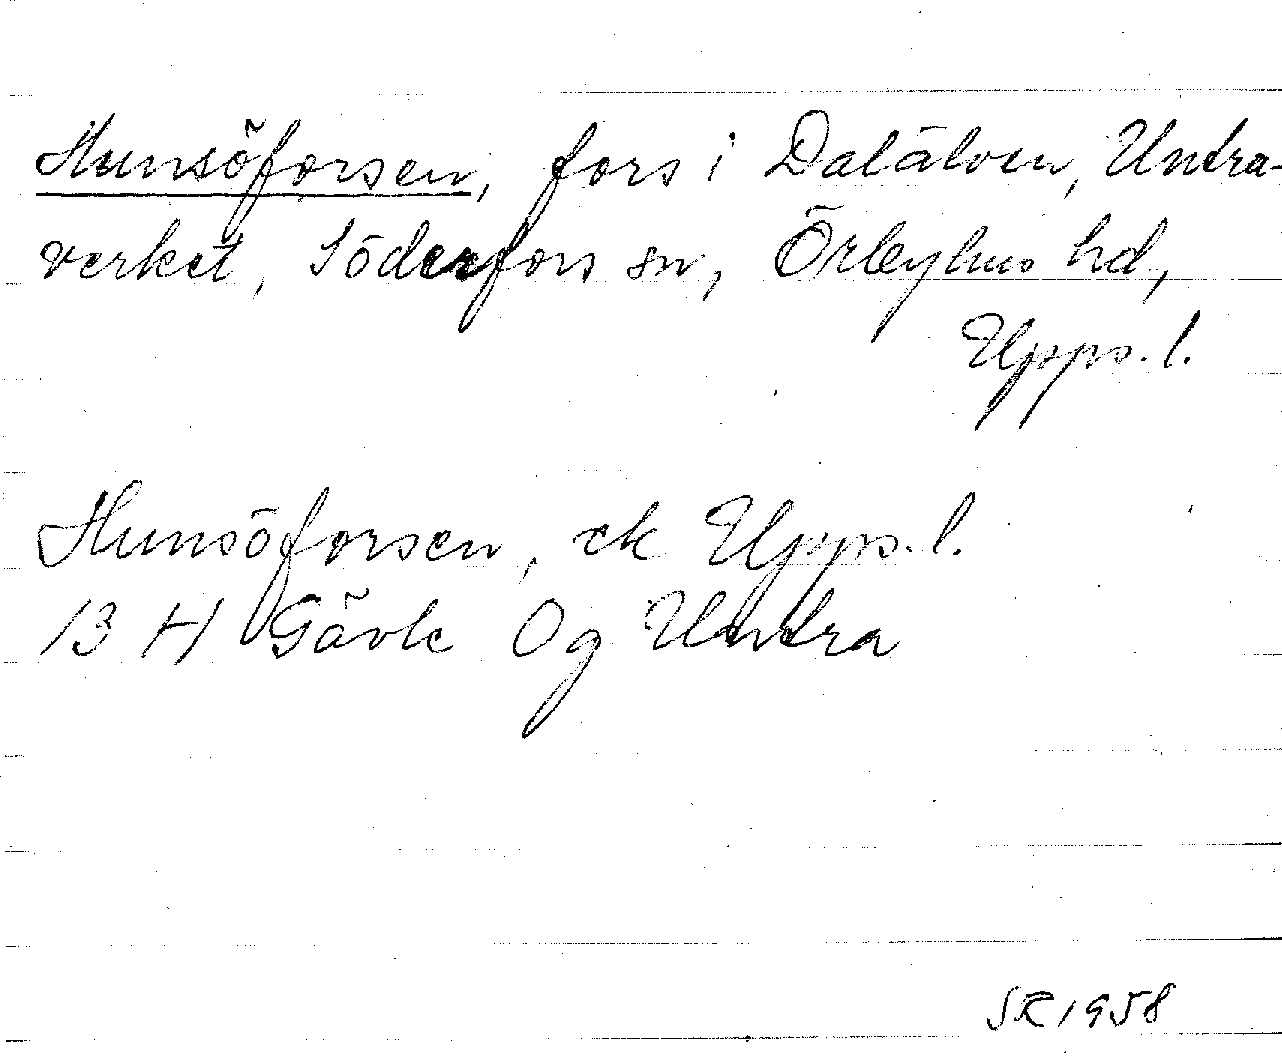 Hunsöforsen, fors i Dalälven, Untra-
verket, Söderfors sn, Örbyhus hd,
Upps. l.
Hunsöforsen, ek Upps. l.
13 H Gävle Og Untra
SR 1958